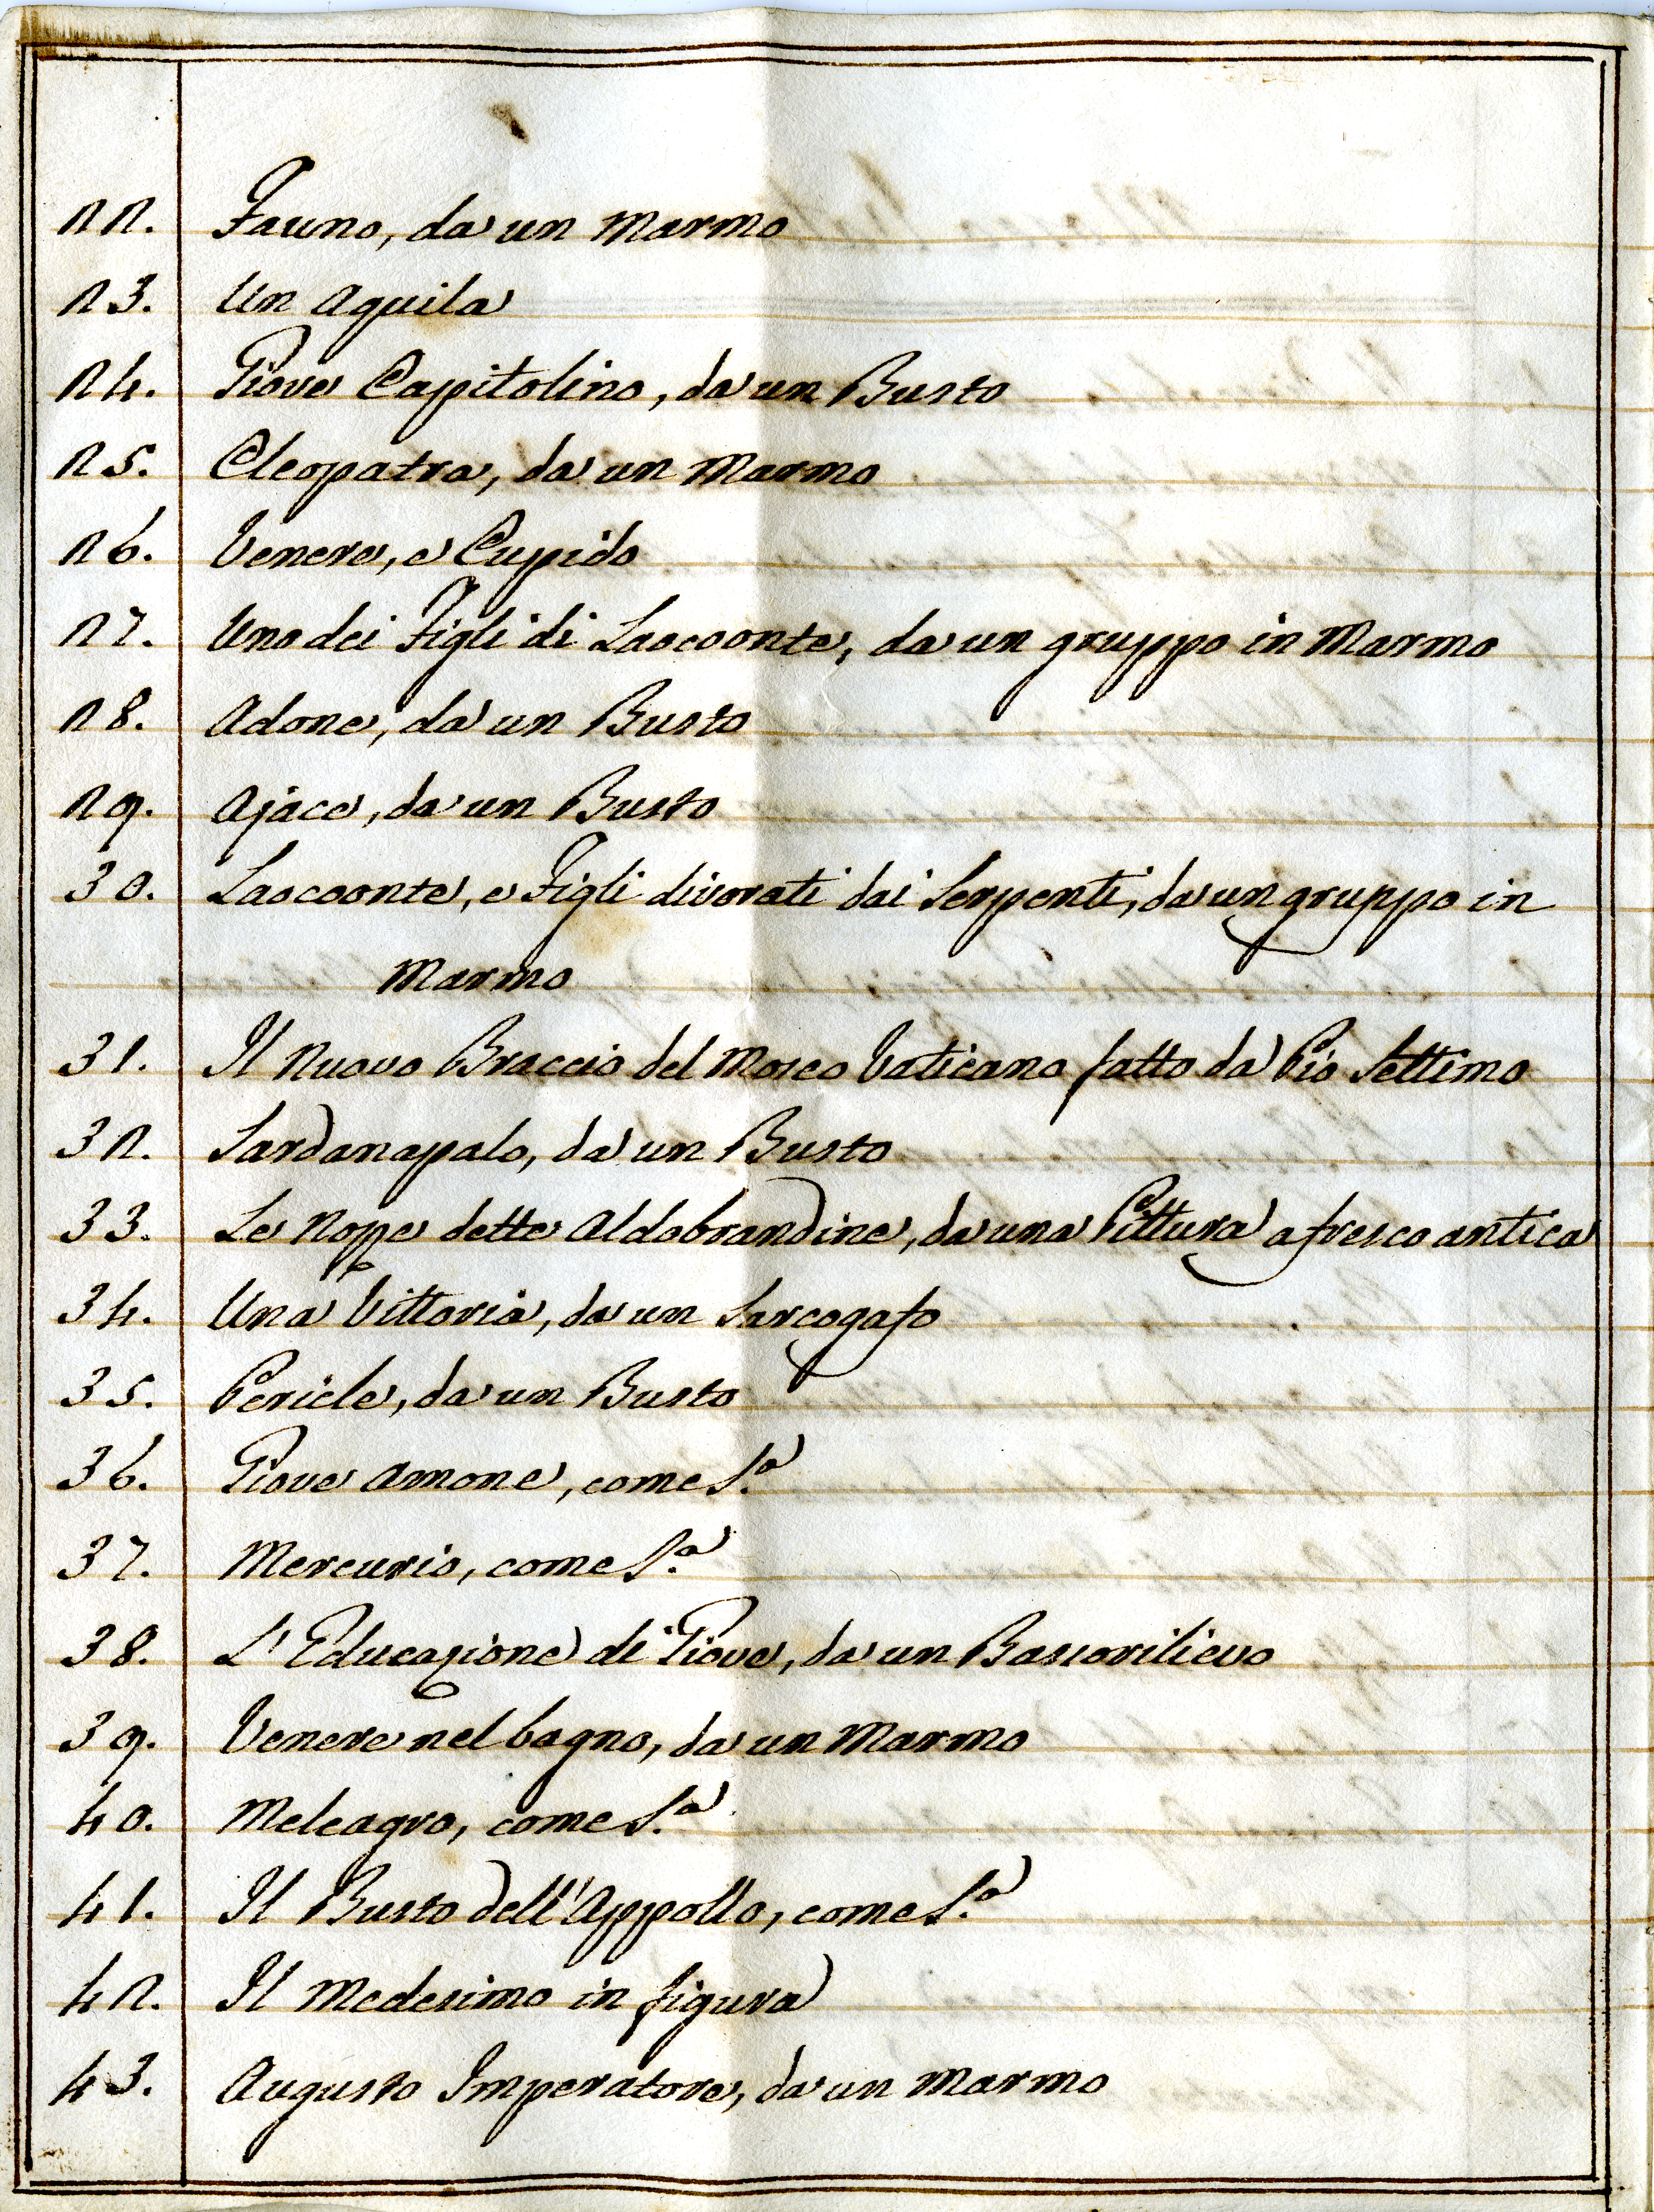 22. Fauno, da un Marmo
23. Un Aquila
24. Giove Capitolino, da un Busto
25. Cleopatra, da un Marmo
26. Venere, e Cupido
27. Uno dei Figli di Laocoonte, da un gruppo in Marmo
28. Adone, da un Busto
29. Ajace, da un Busto
30. Laocoonte, e Figli divorati dai Serpenti, da un gruppo in
Marmo
31. Il Nuovo Braccio del Moseo Vaticano fatto da Pio Settimo
32. Sardanapalo, da un Busto
33. Le Nozze dette Aldobrandine, da una Pittura a fresco antica
34. Una Vittoria, da un Sarcogafo
35. Pericle, da un Busto
36. Giove Amone, come S.a
37. Mercurio, come S.a
38. L'Educazione di Giove, da un Bassorilievo
39. Venere nel bagno, da un Marmo
40. Meleagro, come S.a
41. Il Busto dell'Appollo, come S.a
42. Il Medesimo in figura
43. Augusto Imperatore, da un Marmo